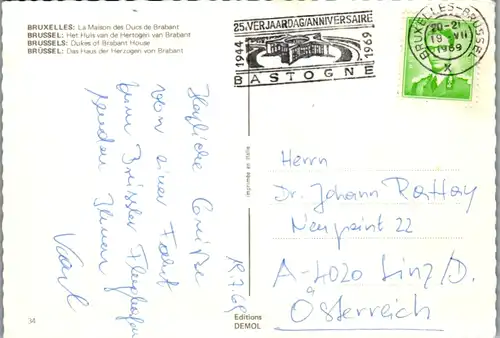 BRUXELLES: La Maison des Ducs de Brabant
BRUSSEL: Het Huis van de Hertogen van Brabant
BRUSSELS: Dukes of Brabant House
BRÜSSEL: Das Haus der Herzogen von Brabant
25.VERJAARDAG/ANNIVERSAIRE
1944
1969
BASTOGNE
BRUXELLES-BRUSSEL
20-21
19 VII
1969
Herzliche Grüße
von einer Fahrt
zum Brüssler Flughafen
senden Ihnen
Karl
19.7.69
imprimée en Italie
Herrn
Dr. Johann Rathay
Neupeint 22
A-4020 Linz/D.
Österreich
34
Editions
DEMOL